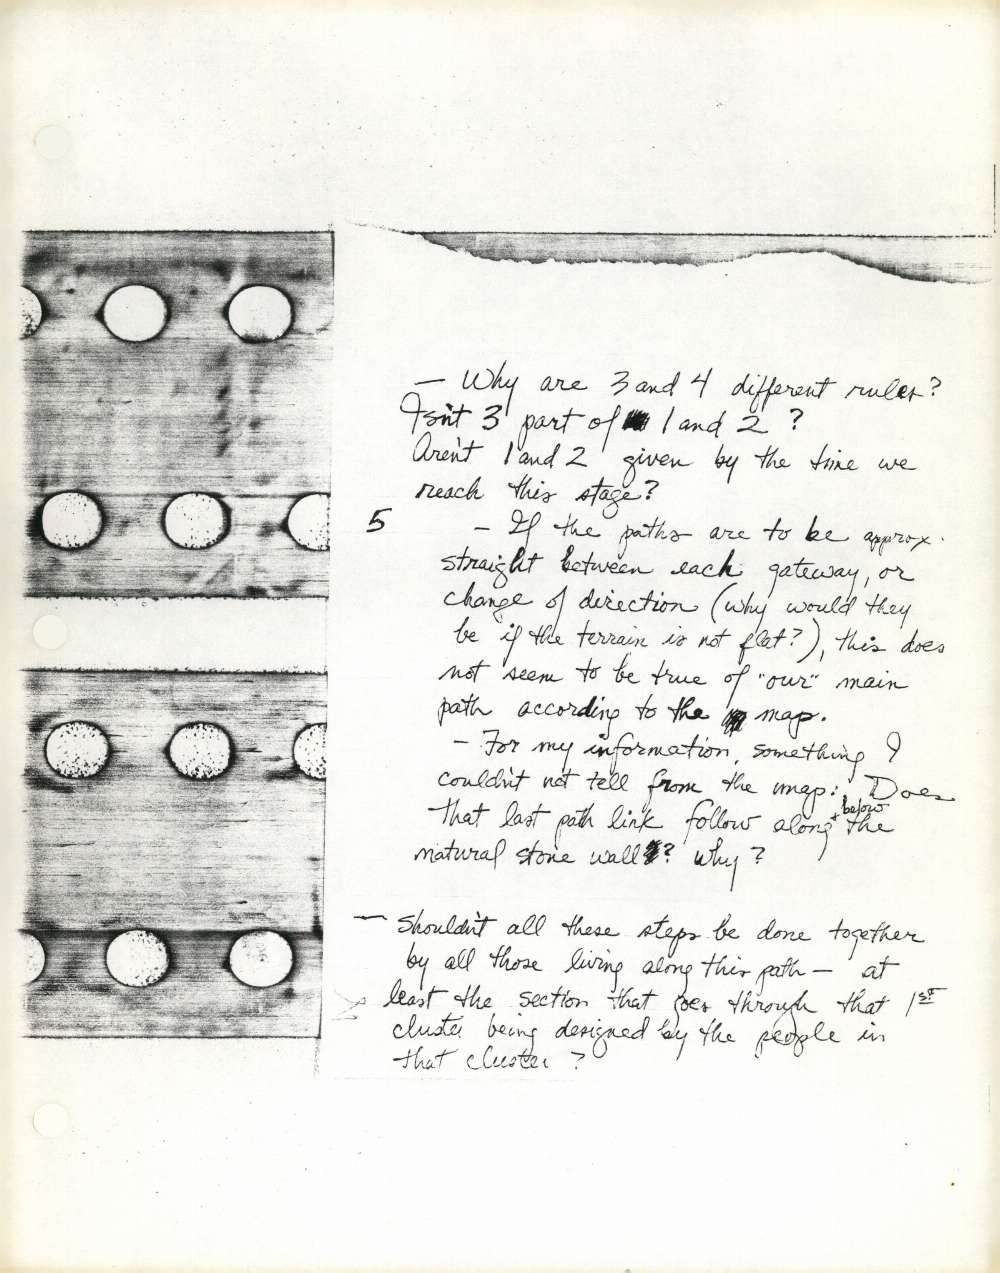 — Why are 3 and 4 different rules?
Isn't 3 part of 1 and 2 ?
Aren't 1 and 2 given by the time we
reach this stage?
5 – If the paths are to be approx.
straight between each gateway, or
change of direction (why would they
be if the terrain is not flat?), this does
not seem to be true of "our" main
path according to the map.
– For my information, something I
couldn't not tell from the map: Does
that last path link follow along + below the
natural stone wall? Why?
— Shouldn't all these steps be done together
by all those living along this path — at
least the section that goes through that 1st
cluster being designed by the people in
that cluster ?